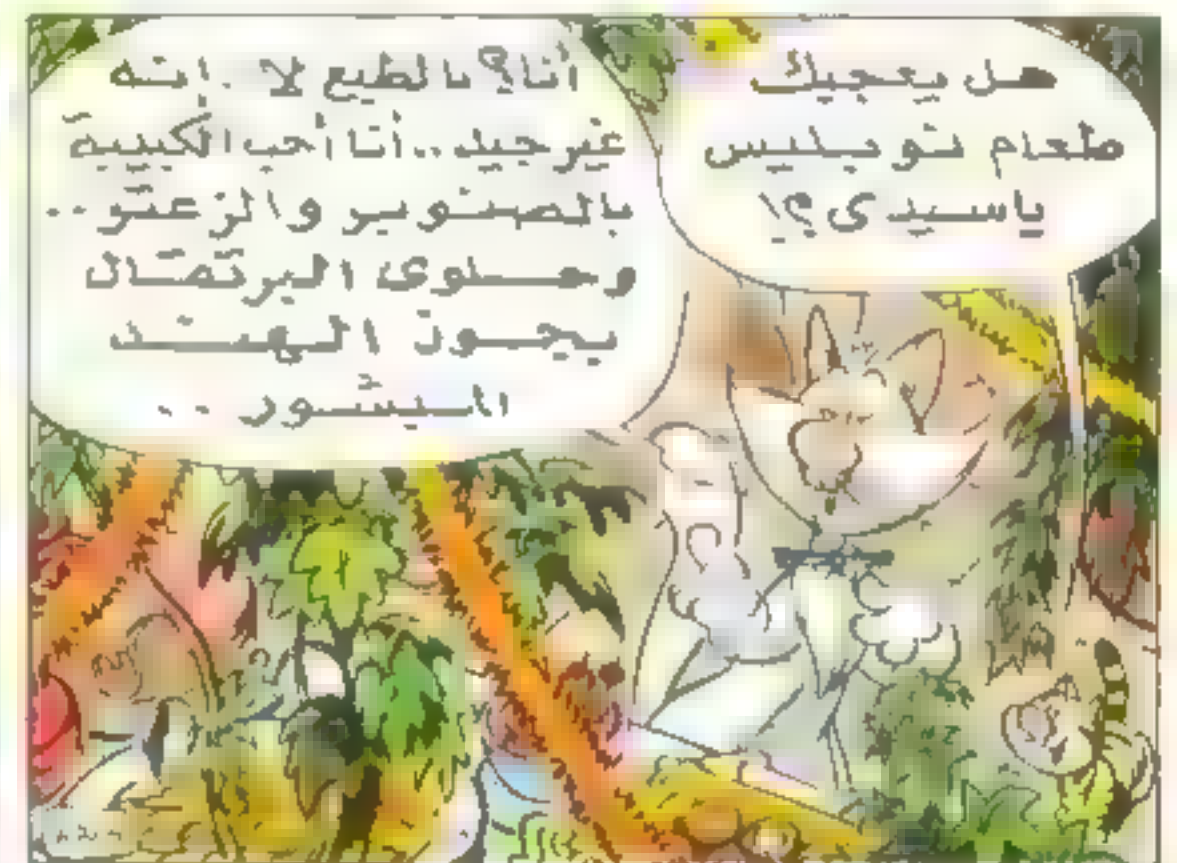 هل يعجبك
طعام نوبليس
ياسيدى؟!
أنا؟ بالطبع لا. إنه
غير جيد.. أنا أحب الكبيبة
بالصنوبر والزعتر..
وحلوى البرتقال
بجوز الهند
المبشور..